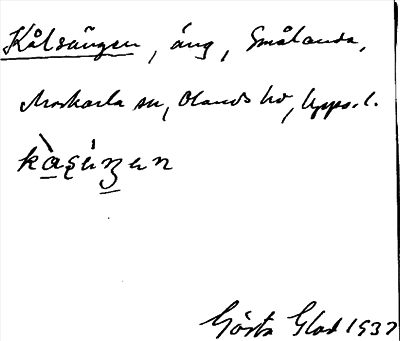 Kålsängen, äng, Smålanda,
Morkarla sn, Olands hd, Upps. l.
Gösta Glad 1937